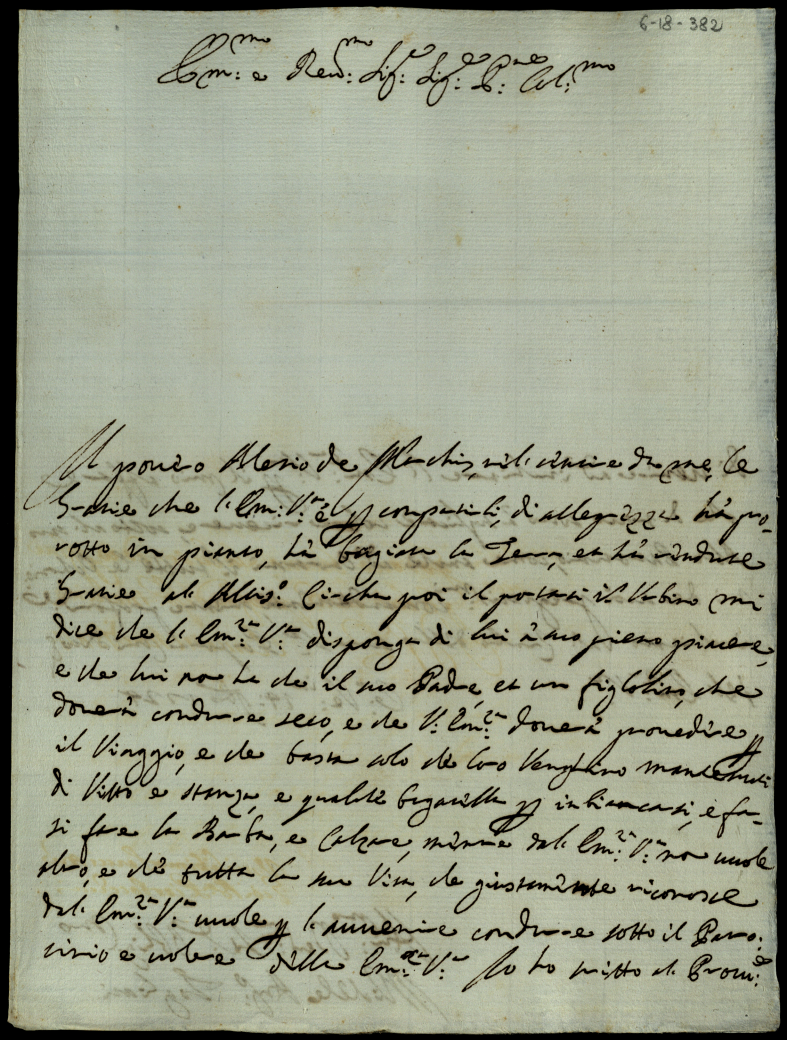 6-18-382
Em:mo e Reu:mo Sig:e Sig:e P:ne Col:mo
Il pouero Alesio de Marchis, nel sentire da me, le
Gratie che l'Em: V:ra è compartirli, di allegrezza hà pro-
rotto in pianto, hà bagiato la Terra, et hà rendute
Gratie al Altis:o Circha poi il portarsi il Urbino mi
dice che l'Em:za V:ra disponga di lui à suo pieno piacere,
e che lui non ha che il suo Padre, et un figlolino, che
douerà condurre seco, e che V: Em:za douerà prouedire p
il Viaggio, e che basta solo che loro Venghino mantenuti
di Vitto e stanza, e qualche bagatella p inbiancarsi, e fa-
si fare la Barba, e Calzare, mentre dal Em:za V:ra non uuole
altro, e che tutta la sua Vita, che giustamente riconosce
dal Em:za V:ra uuole p l'auuenire condurre sotto il Patro:
cinio e uolere della Em:za V:ra Io ho scritto al Prou:e